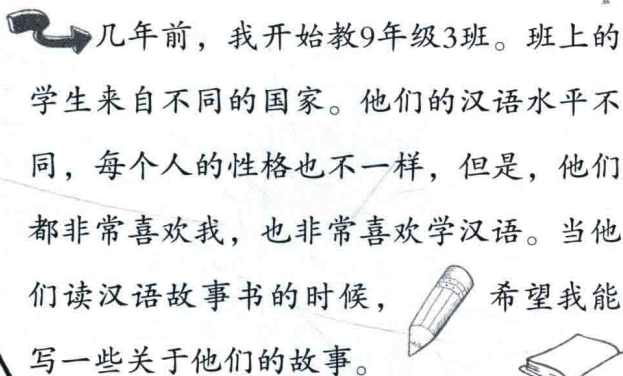 几年前，我开始教9年级3班。班上的
学生来自不同的国家。他们的汉语水平不
同，每个人的性格也不一样，但是，他们
都非常喜欢我，也非常喜欢学汉语。当他
们读汉语故事书的时候， 希望我能
写一些关于他们的故事。